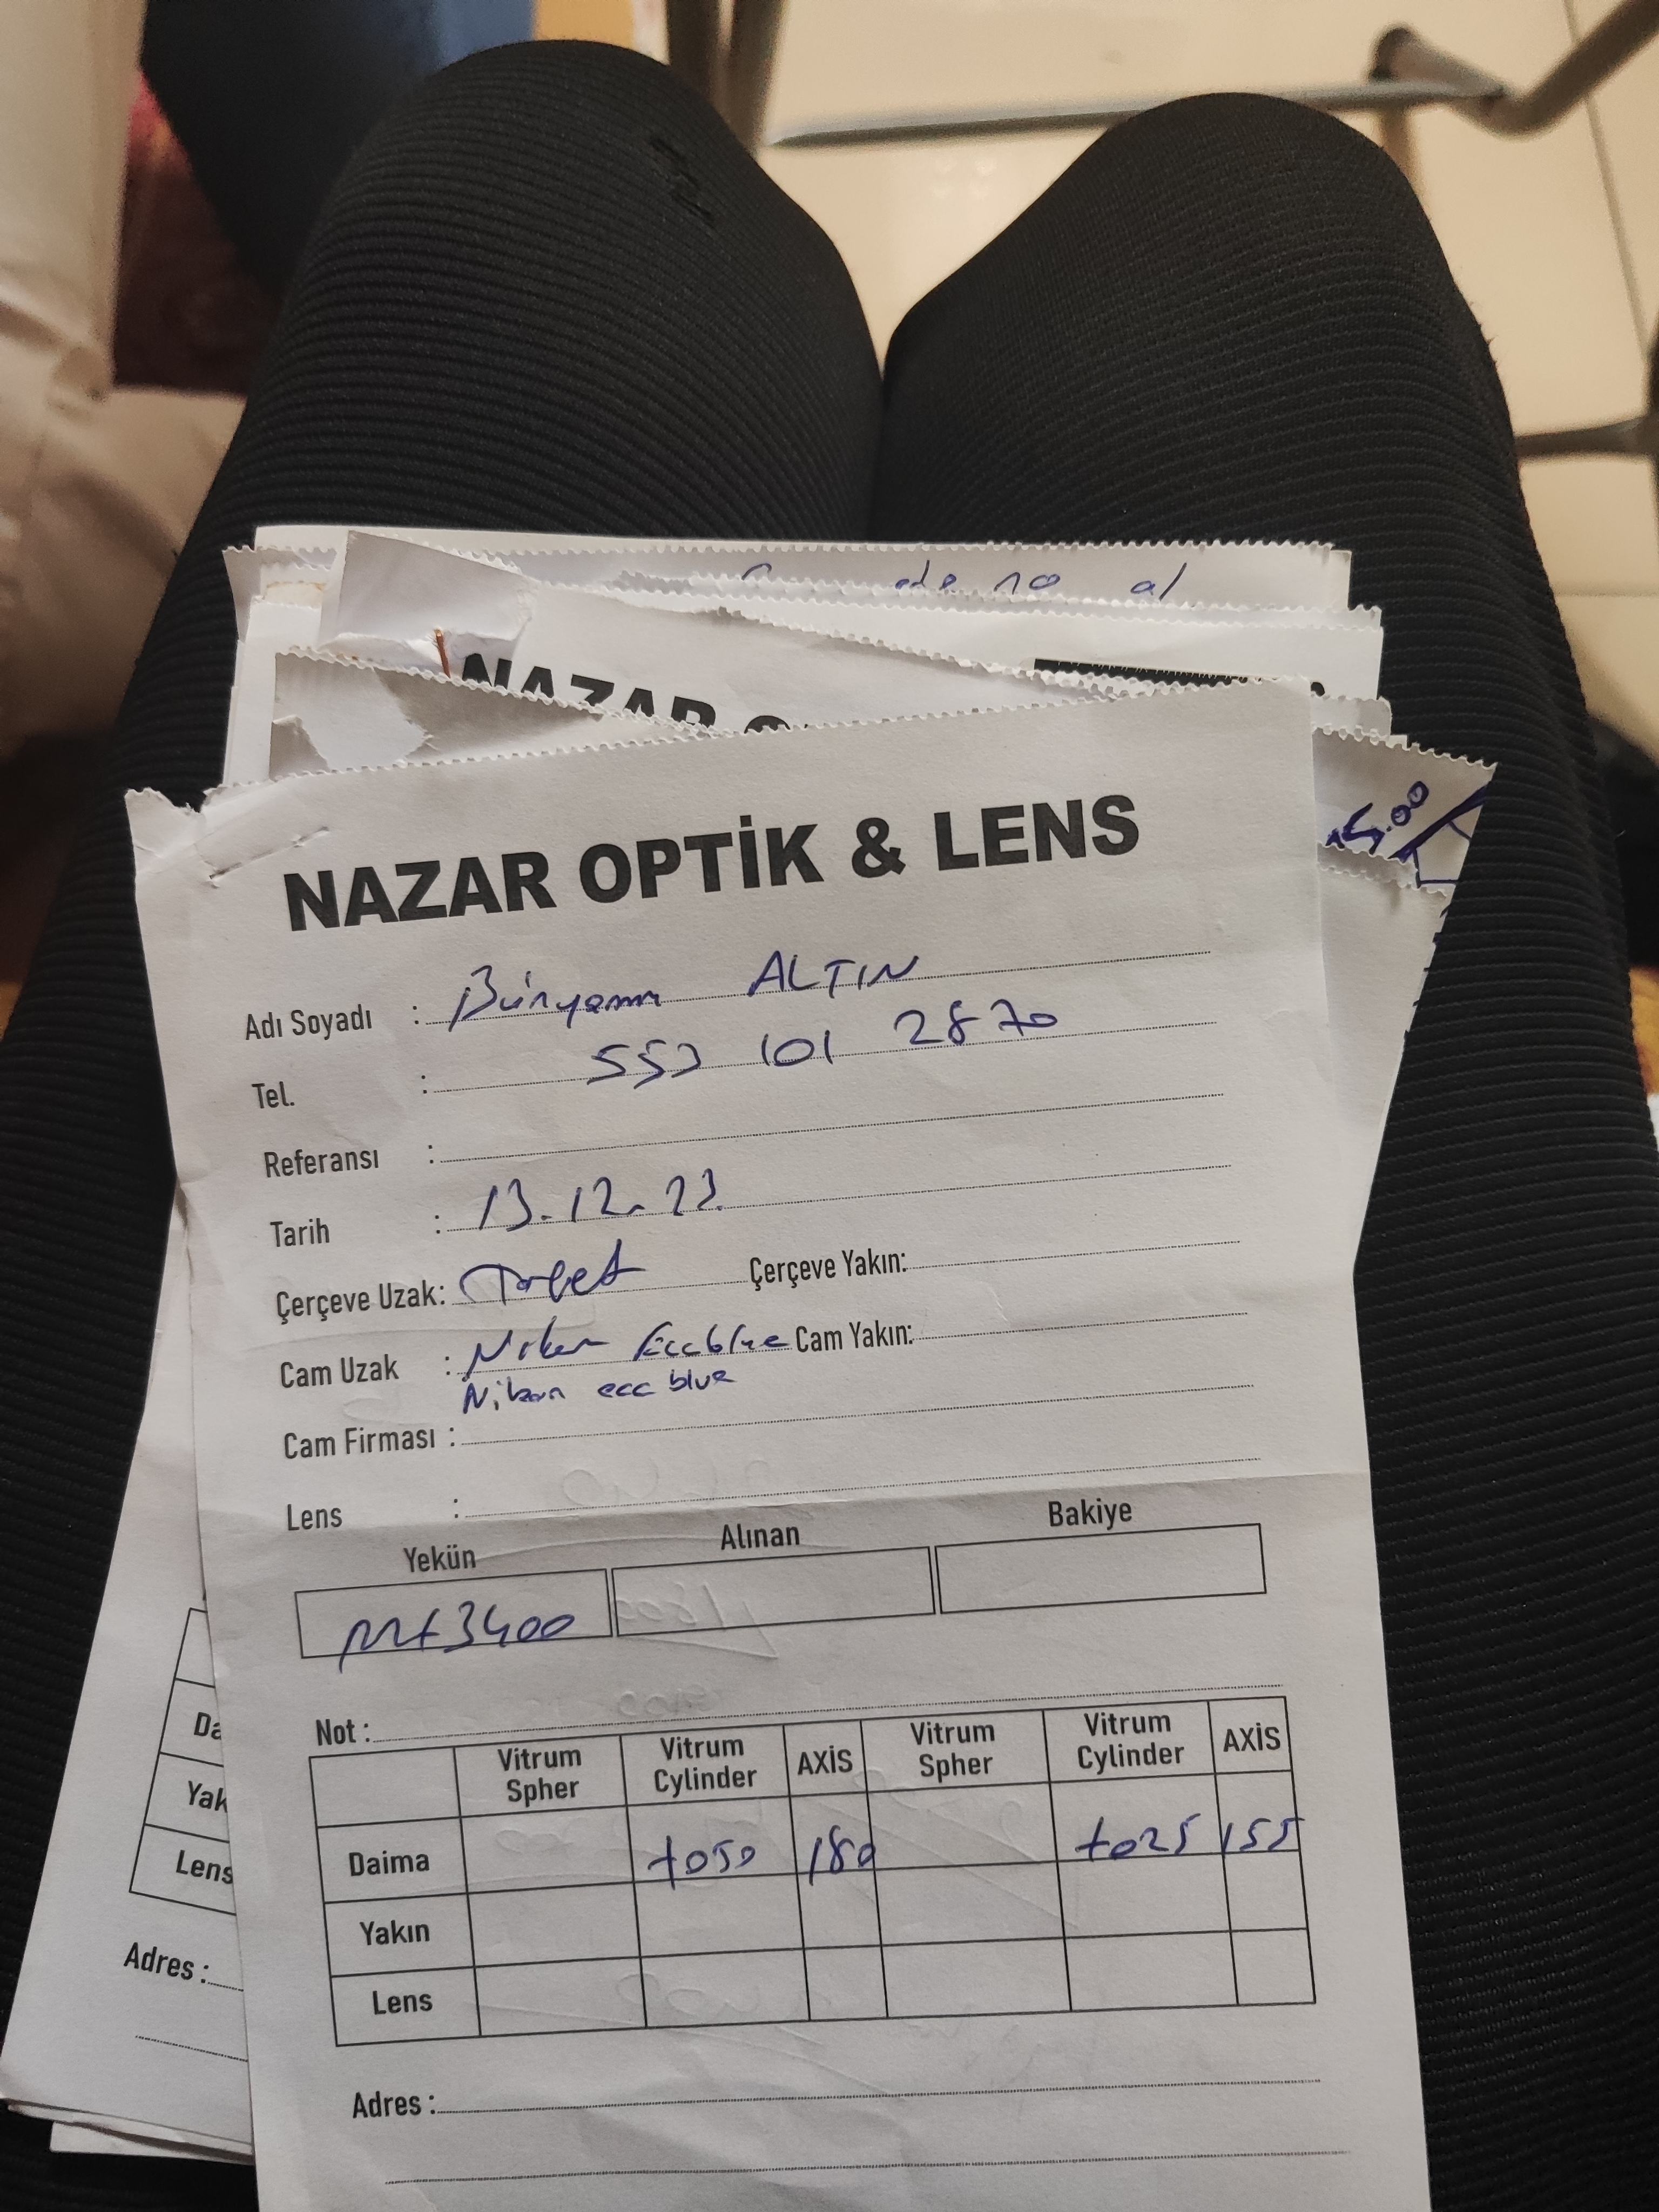 de 10 al
NAZAR O
15.00
NAZAR OPTİK & LENS
Adı Soyadı : Bünyamin ALTIN
Tel. : 553 101 2870
Referansı :
Tarih : 13.12.23.
Çerçeve Uzak: Çerçeve Yakın:
Cam Uzak : Nikon Eccblue Cam Yakın:
Nikon ecc blue
Cam Firması :
Lens :
Yekün Alınan Bakiye
3400
Not :
Vitrum Spher Vitrum Cylinder AXİS Vitrum Spher Vitrum Cylinder AXİS
Daima +050 180 +025 155
Yakın
Lens
Adres :
Da
Yak
Lens
Adres :